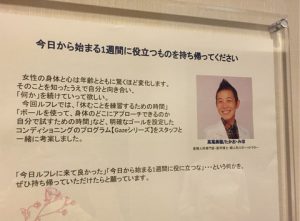 今日から始まる1週間に役立つものを持ち帰ってください
女性の身体と心は年齢とともに驚くほど変化します。
そのことを知ったうえで自分と向き合い、
「何か」を続けていって欲しい。
今回ルフレでは、「休むことを練習するための時間」
「ボールを使って、身体のどこにアプローチできるのか
自分で試すための時間」など、明確なゴールを設定した
コンディショニングのプログラム【Gazeシリーズ】をスタッフと
一緒に考案しました。
「今日ルフレに来て良かった」「今日から始まる1週間に役に立つな」・・・という何かを、
ぜひ持ち帰っていただけたらと願っています。
高尾美穂/たかお・みほ